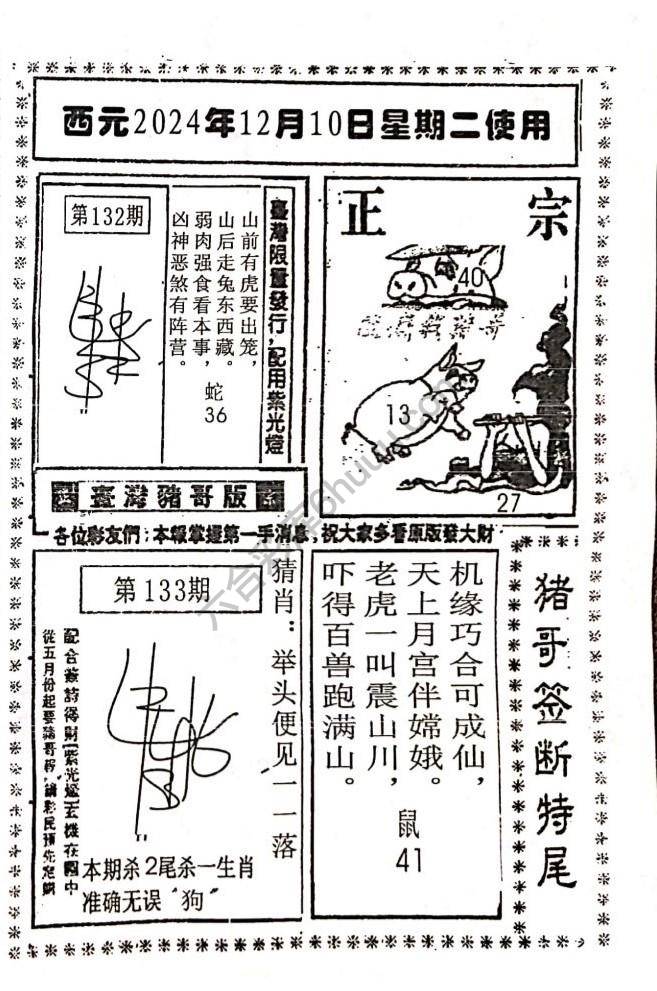 西元2024年12月10日星期二使用
第132期
山前有虎要出笼，
山后走兔东西藏。
弱肉强食看本事，
凶神恶煞有阵营。
蛇
36
臺灣限量發行，配用紫光燈
臺灣豬哥版
正宗
40
13
27
各位彩友們：本報掌握第一手消息，祝大家多看原版發大財
第133期
猜肖：举头便见一一落
配合簽詩得財
紫光燈玄機在圖中
從五月份起要豬哥報
本期杀2尾杀一生肖
准确无误“狗”
机缘巧合可成仙，
天上月宫伴嫦娥。
老虎一叫震山川，
吓得百兽跑满山。
鼠
41
猪哥签断特尾